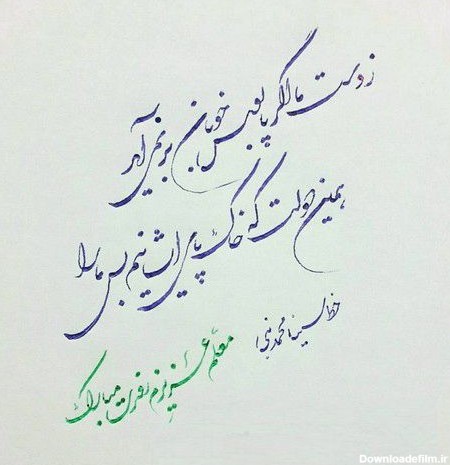 ز دست ما اگر پابوس خوبان بر نمی آید
همین دولت که خاک پای ایشانیم بس ما را
خط سینا محمدنیا
معلم عزیزم روزت مبارک
Downloadefilm.ir